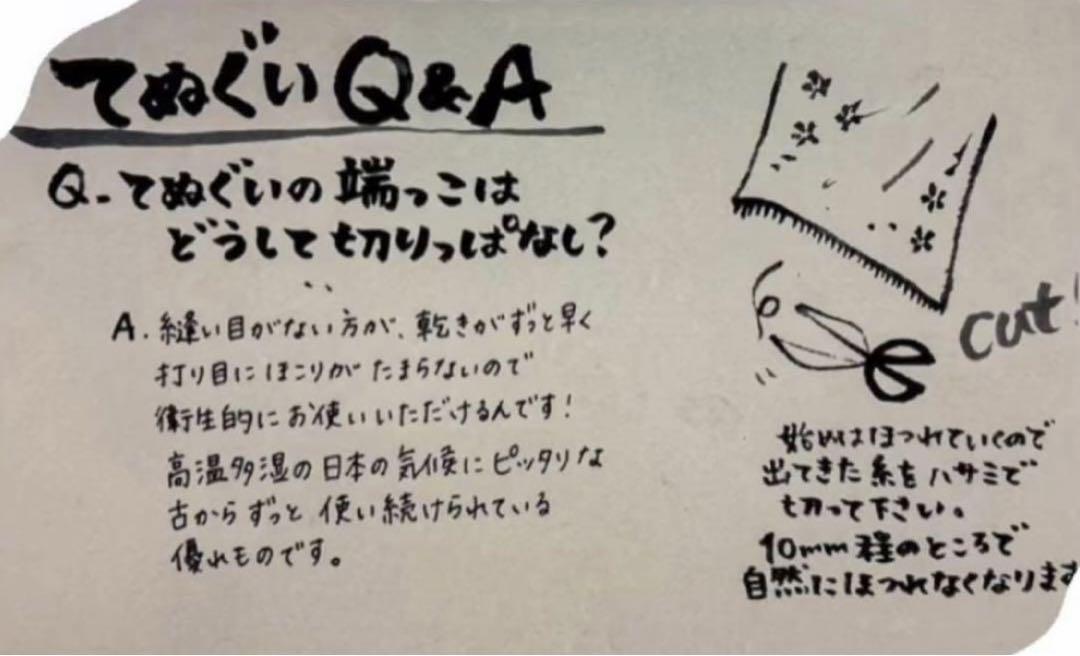 てぬぐいQ&A
Q-てぬぐいの端っこは
どうして切りっぱなし?
A.縫い目がない方が、乾きがずっと早く
折り目にほこりがたまらないので
衛生的にお使いいただけるんです!
高温多湿の日本の気候にピッタリな
古からずっと使い続けられている
優れものです。
cut!
始めはほつれていくので
出てきた糸をハサミで
切って下さい。
10mm程のところで
自然にほつれなくなります